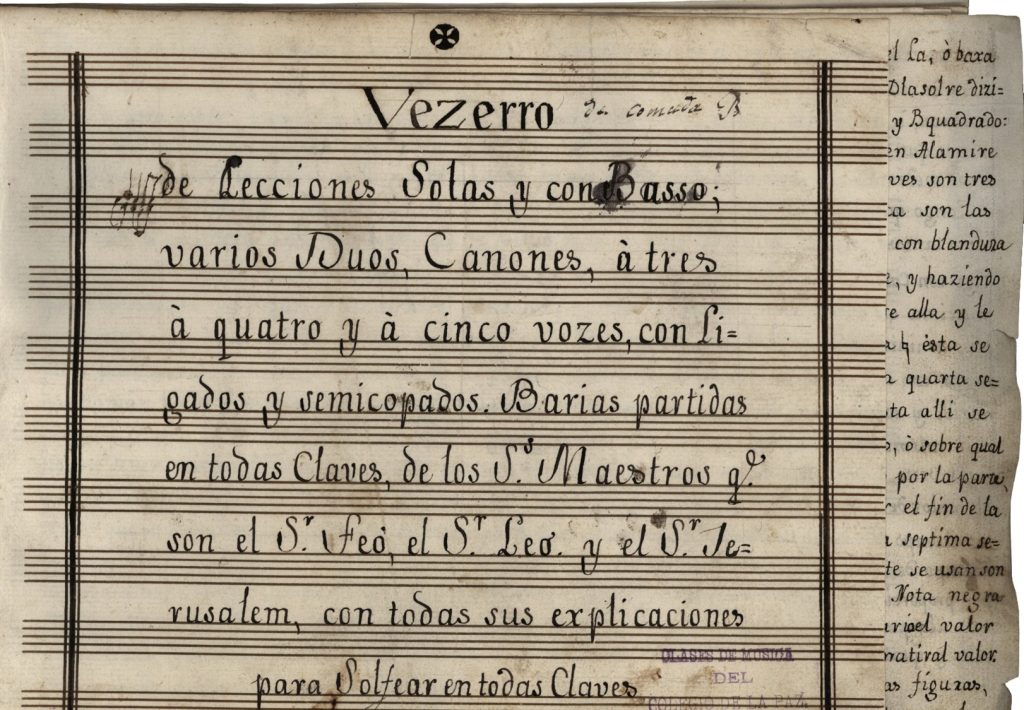 Vezerro
de Lecciones Solas y con Basso;
varios Duos, Canones, à tres
à quatro y à cinco vozes, con li=
gados y semicopados. Barias partidas
en todas Claves, de los S.s Maestros q.e
son el S.r Feo, el S.r Leo. y el S.r Je=
rusalem, con todas sus explicaciones
para Solfear en todas Claves
CLASES DE MUSICA
DEL
COLEGIO DE LA PAZ.
el La, ò baxa
Dlasolre dizi=
y Bquadrado:
en Alamire
ves son tres
ca son las
con blandura
, y haziendo
re alla y le
ésta se
a quarta se=
sta alli se
, ò sobre qual
por la parte,
el fin de la
a septima se=
te se usan son
Nota negra
el valor
natiral valor.
as figuras,